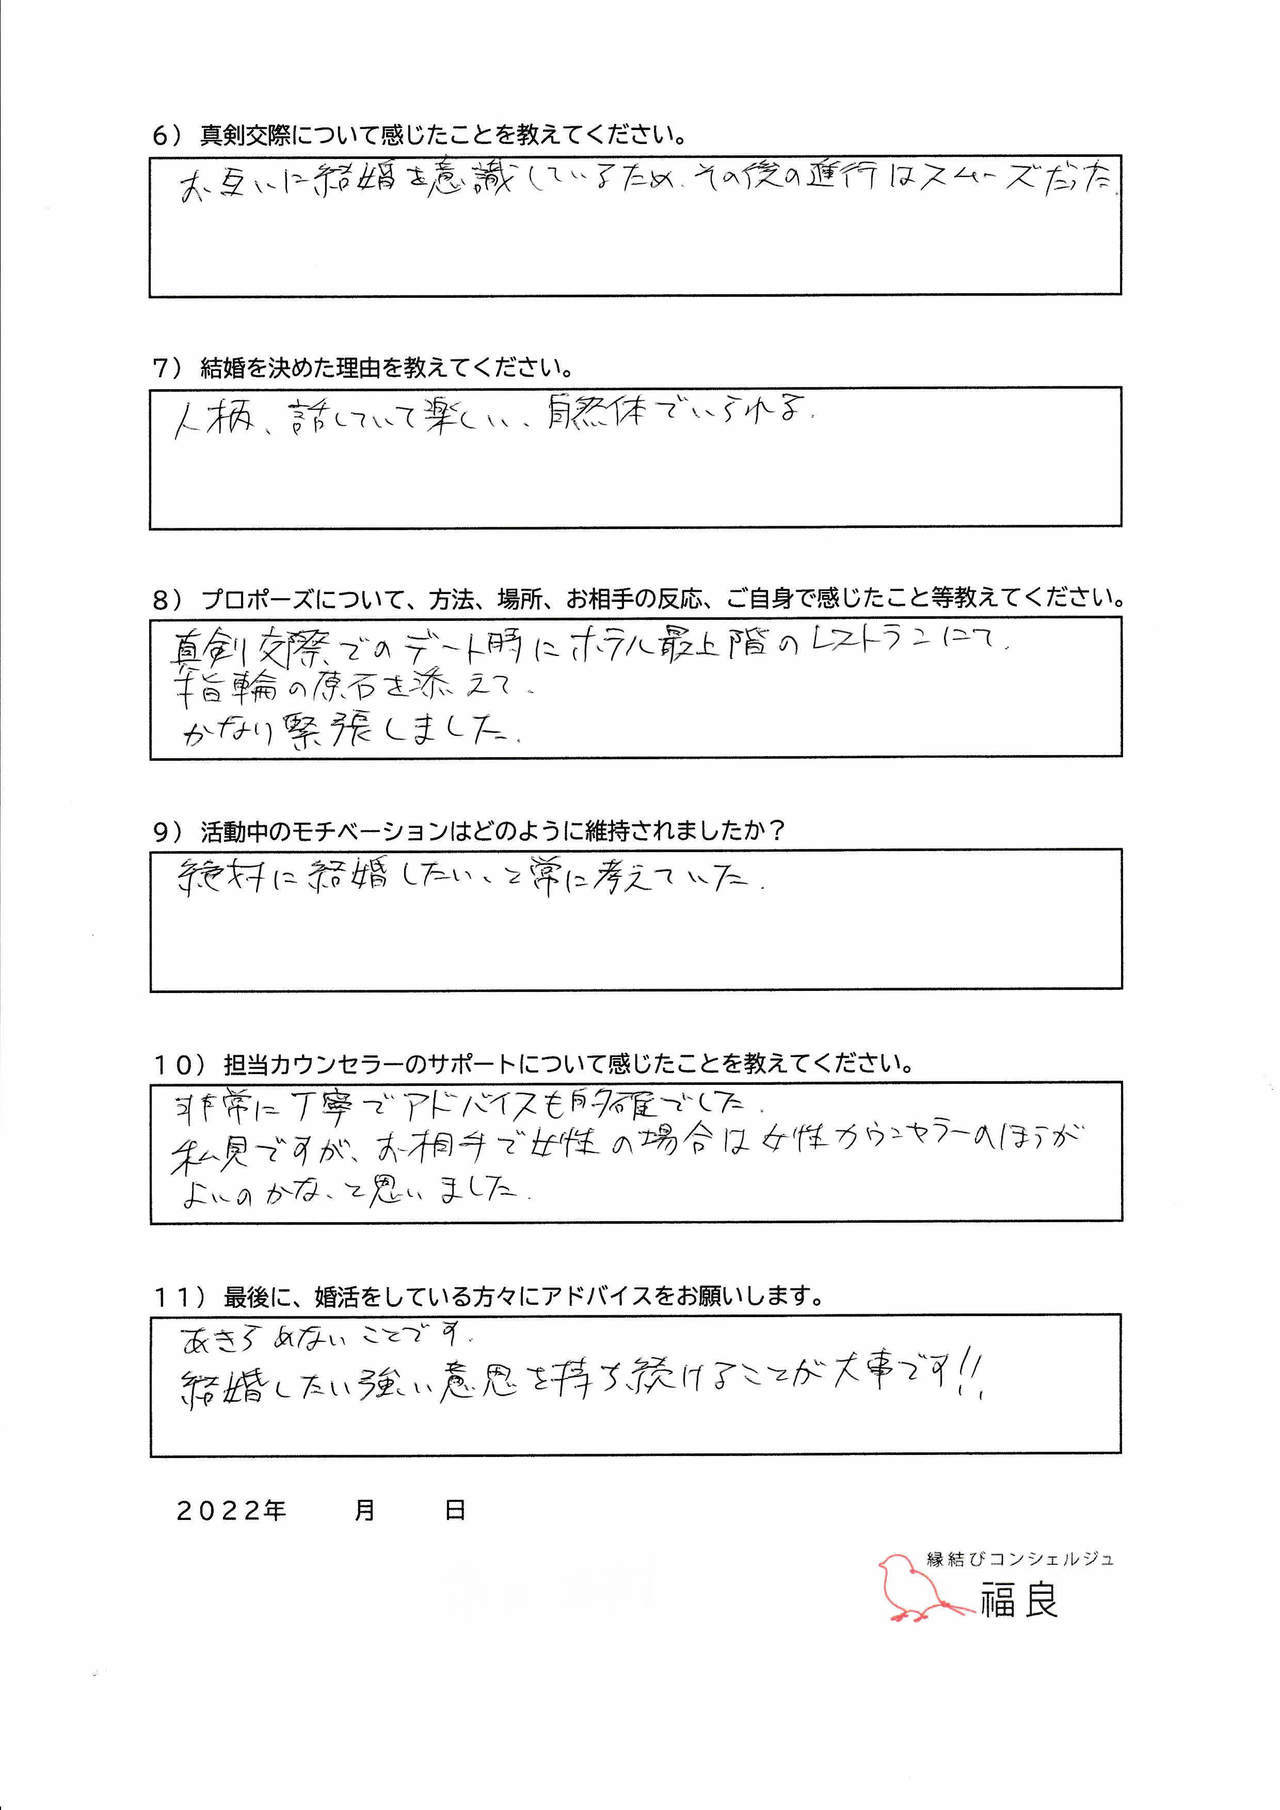 ６）真剣交際について感じたことを教えてください。
お互いに結婚を意識しているため、その後の進行はスムーズだった．
７）結婚を決めた理由を教えてください。
人柄、話していて楽しい、自然体でいられる．
８）プロポーズについて、方法、場所、お相手の反応、ご自身で感じたこと等教えてください。
真剣交際でのデート時にホテル最上階のレストランにて、
指輪の原石を添えて．
かなり緊張しました．
９）活動中のモチベーションはどのように維持されましたか？
絶対に結婚したい、と常に考えていた．
１０）担当カウンセラーのサポートについて感じたことを教えてください。
非常に丁寧でアドバイスも的確でした．
私見ですが、お相手で女性の場合は女性カウンセラーのほうが
よいのかな、と思いました．
１１）最後に、婚活をしている方々にアドバイスをお願いします。
あきらめないことです．
結婚したい強い意思を持ち続けることが大事です!!
２０２２年　　　月　　　日
縁結びコンシェルジュ
福良